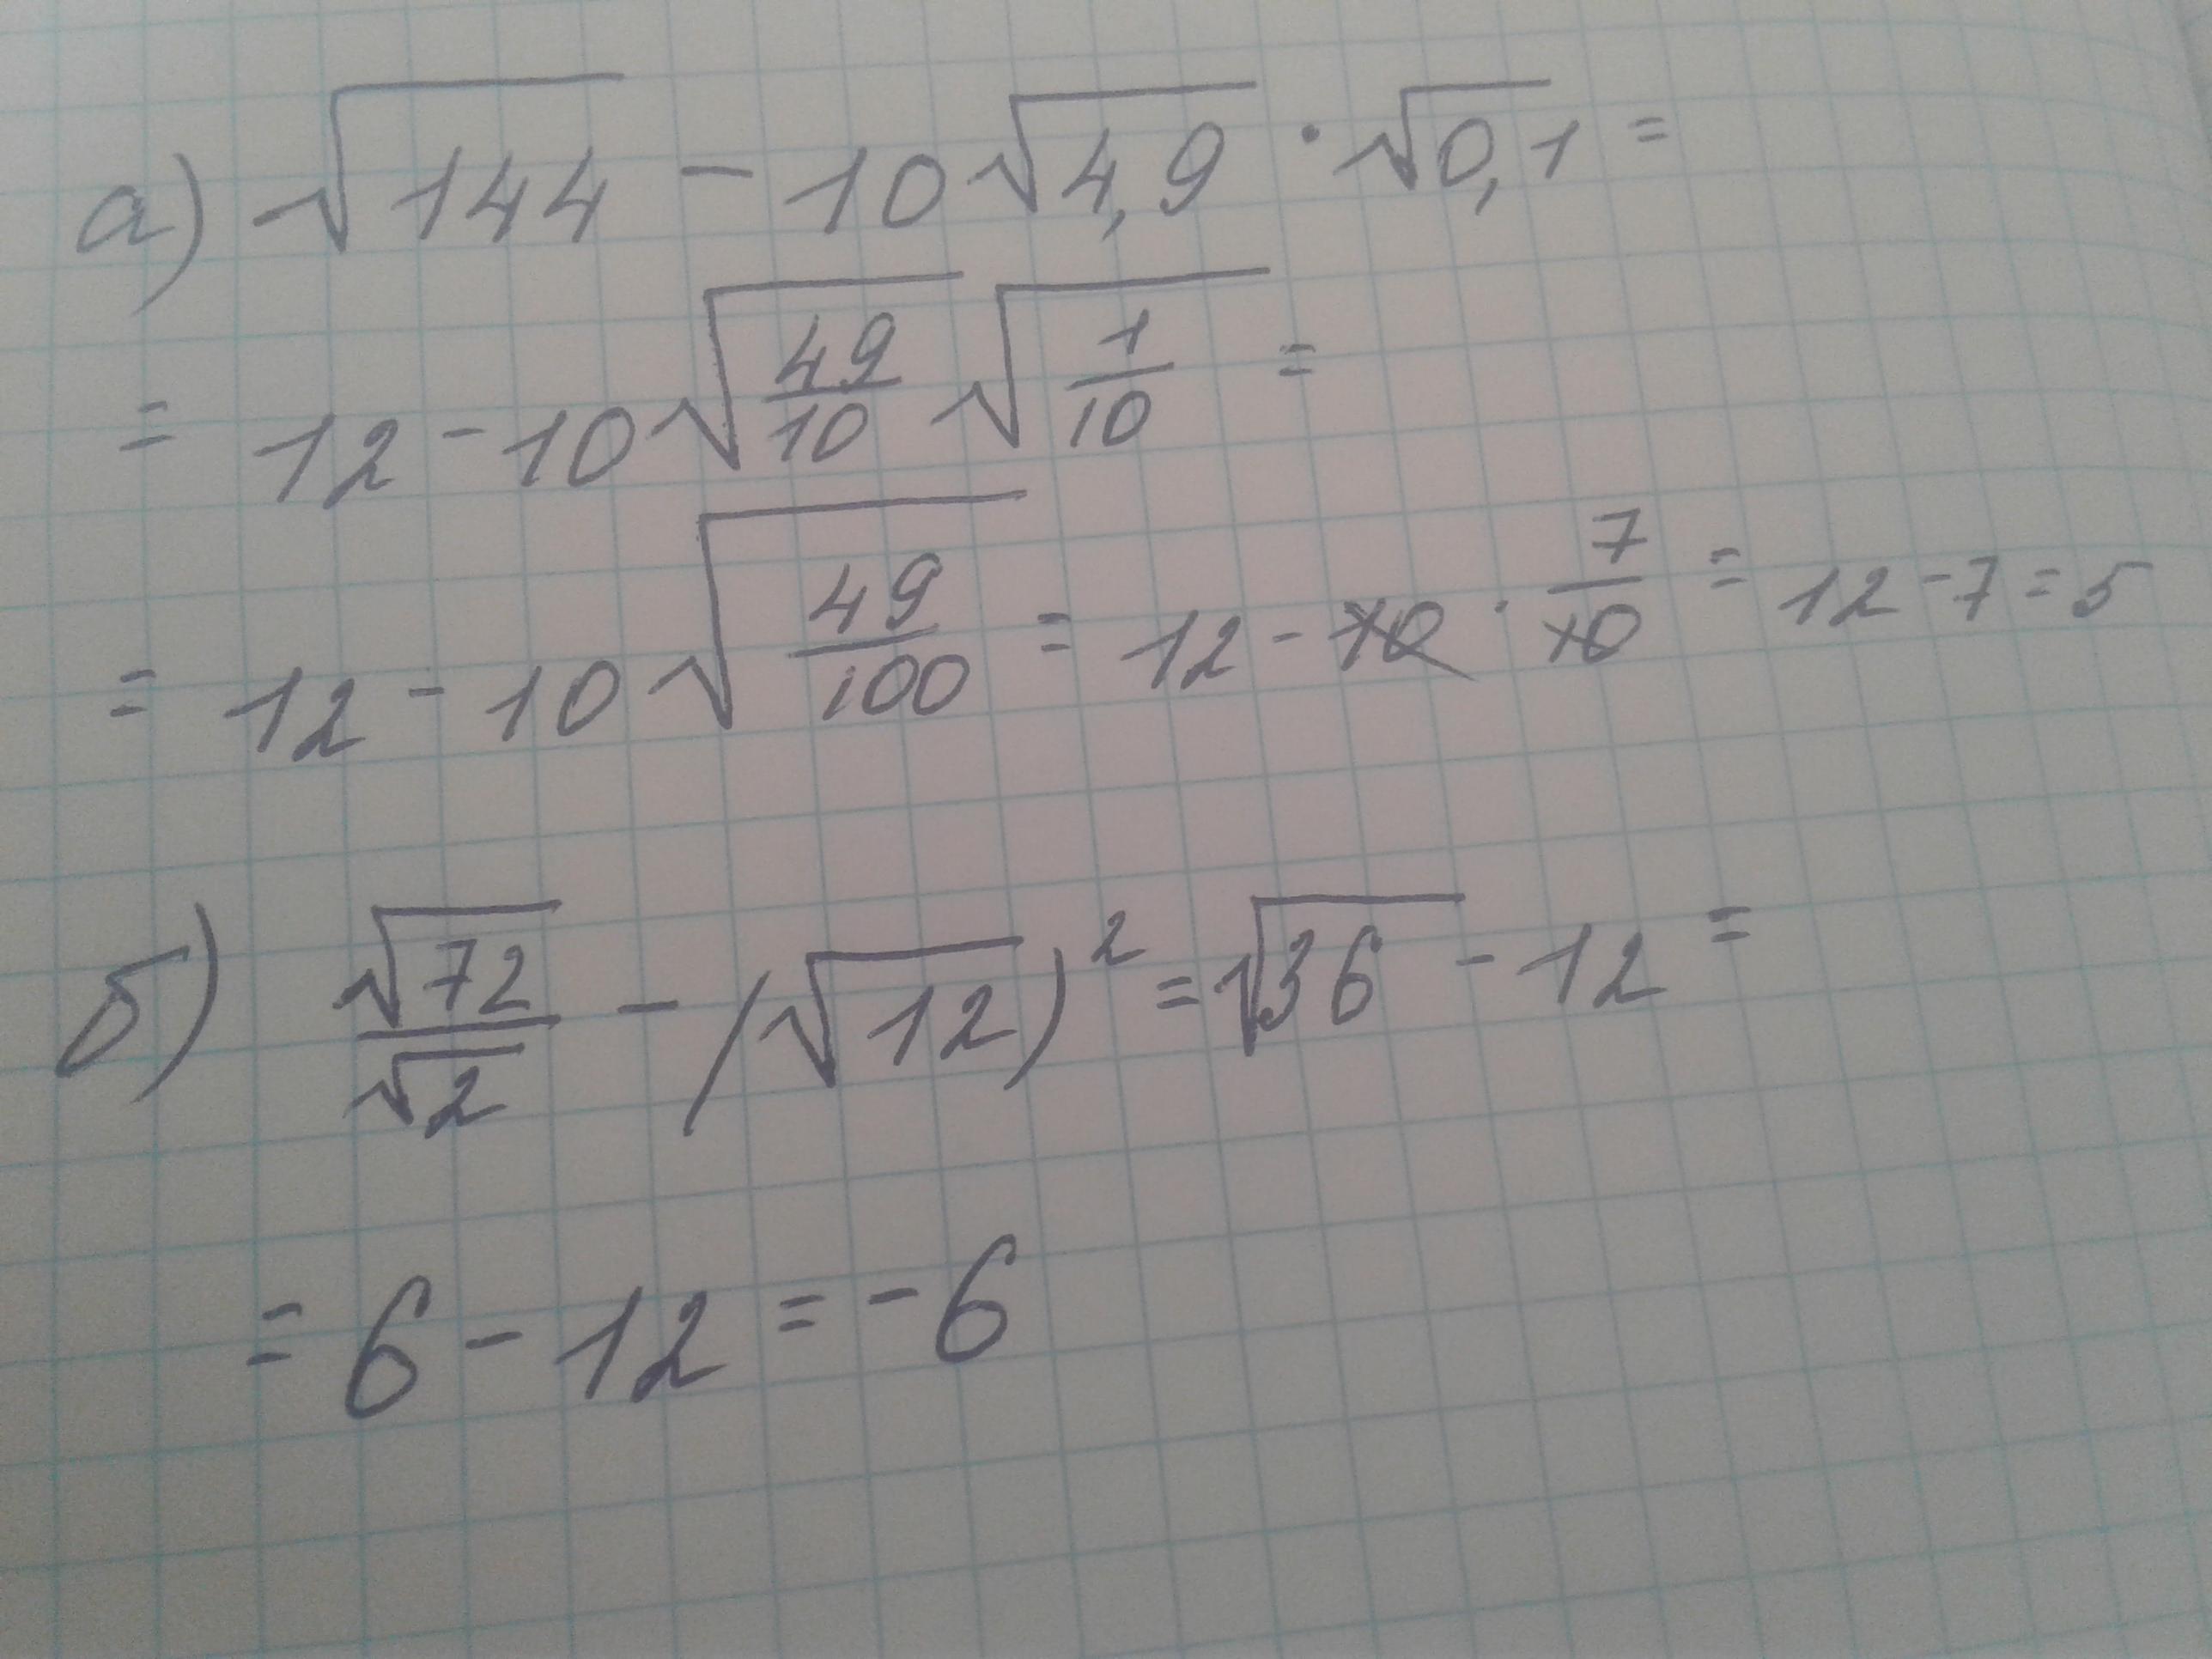 а) √144 − 10√4,9 · √0,1 =
= 12 − 10√(49/10) √(1/10) =
= 12 − 10√(49/100) = 12 − 10 · 7/10 = 12 − 7 = 5
б) √72/√2 − (√12)² = √36 − 12 =
= 6 − 12 = −6